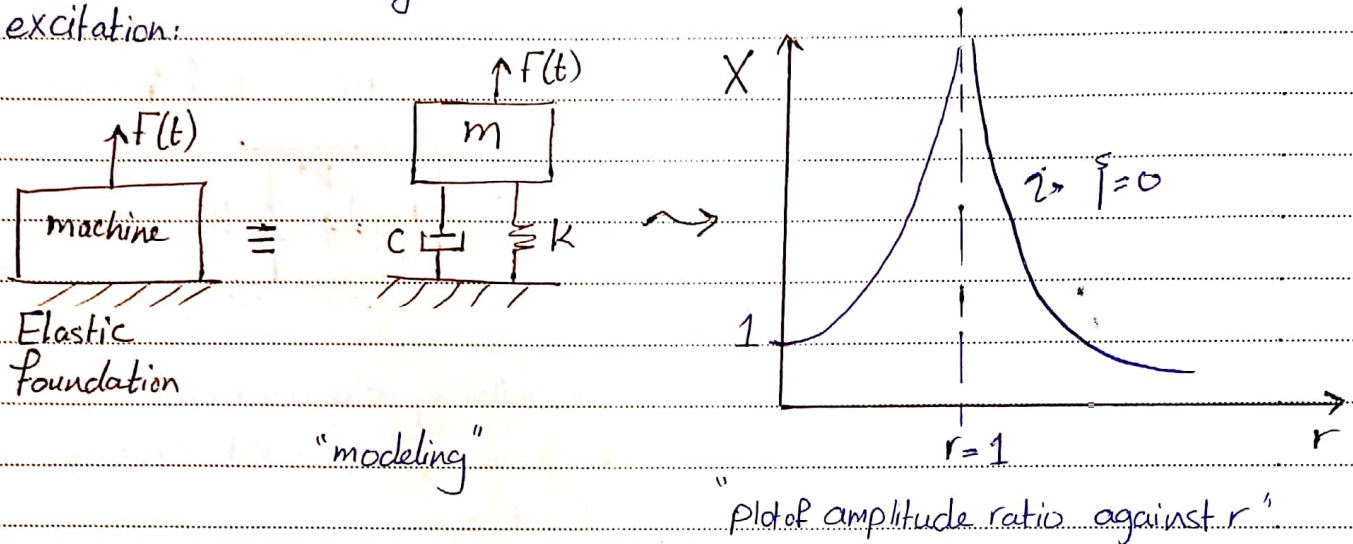 excitation:
F(t)
machine
Elastic
foundation
≡
F(t)
m
C
K
"modeling"
X
1
ξ=0
r=1
r
"plot of amplitude ratio against r"